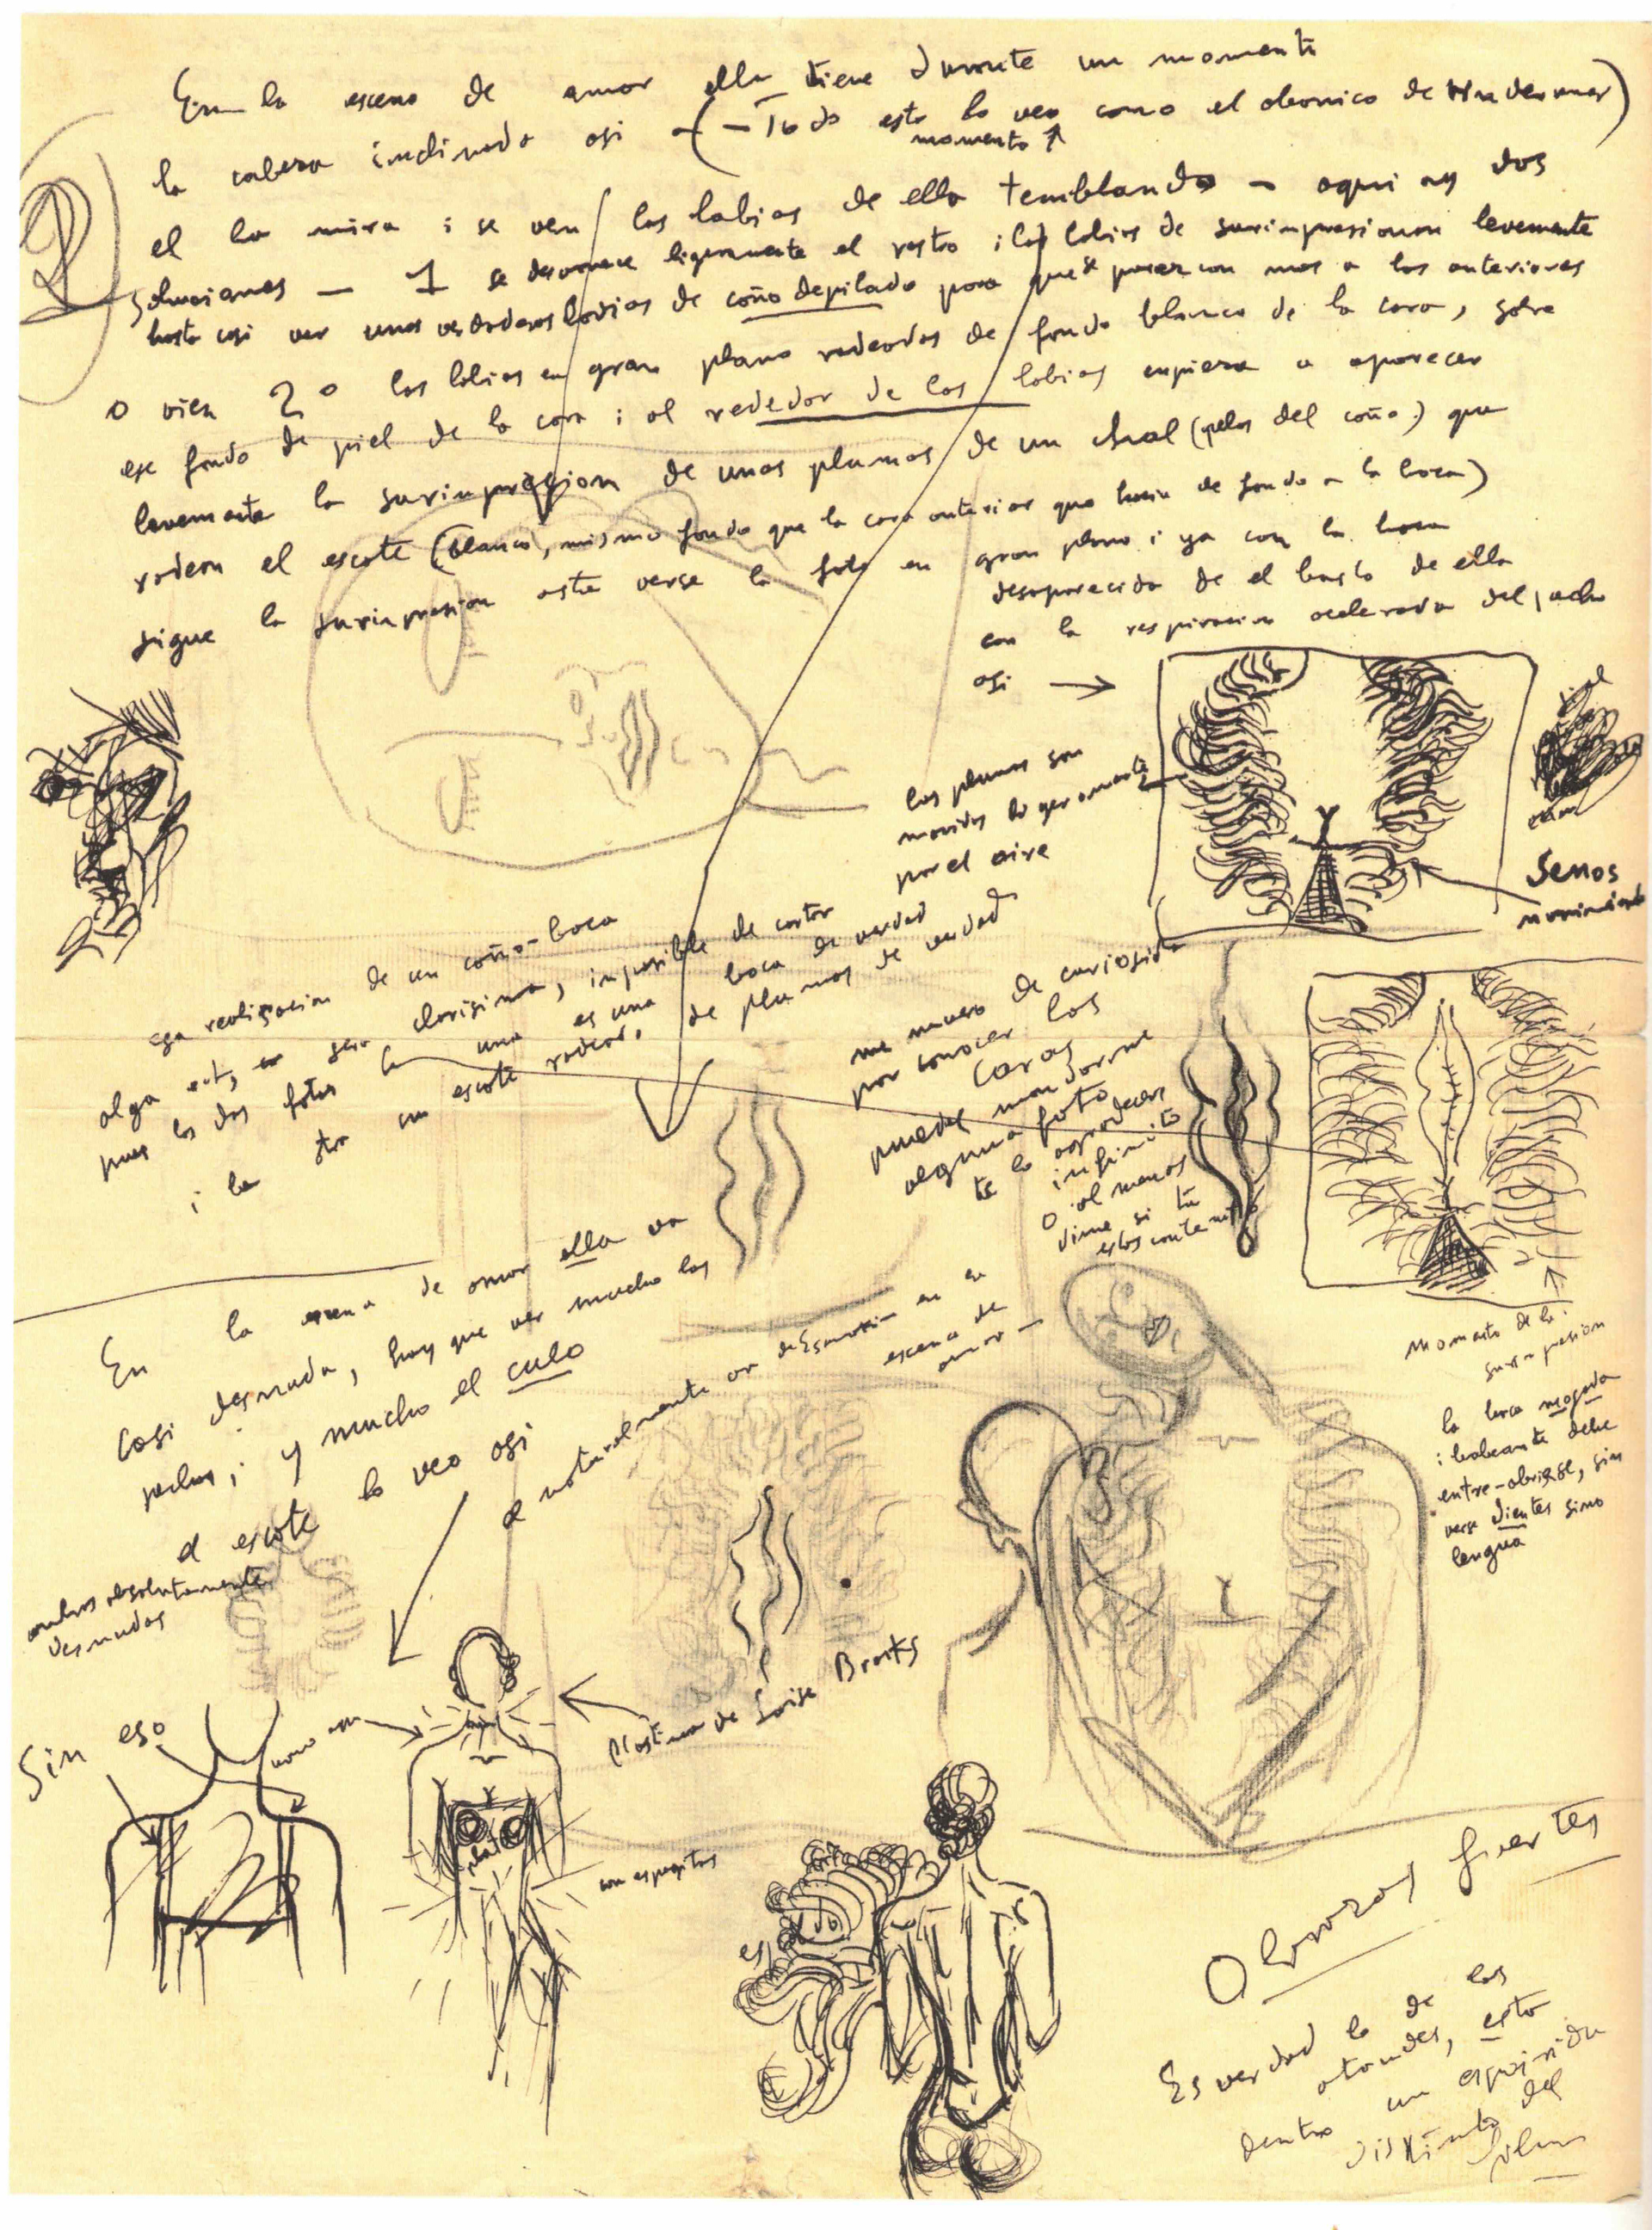 En la escena de amor ella tiene durante un momento
la cabeza inclinada asi — (— Todo esto lo veo como el abanico de
momento ↑
el la mira i se ven los labios de ella temblando — aqui ay dos
soluciones — 1 se desvanece ligeramente el rostro i los labios de surimpresionan levemente
hasta casi ver unos verdaderos labios de coño depilado para que se parezcan mas a los anteriores
o vien 2º los labios en gran plano rodeados de fondo blanco de la cara, sobre
ese fondo de piel de la cara i al rededor de los labios empieza a aparecer
levemente la surimpresion de unas plumas de un chal (pelos del coño) que
rodean el escote (blanco, mismo fondo que la cara anterior que hacia de fondo a la boca)
sigue la surimpresion asta verse la foto en gran plano i ya con la boca
desaparecida de el busto de ella
con la respiracion acelerada del pecho
asi →
las plumas son
movidas ligeramente
por el aire
Senos
movimiento
realizacion de un coño-boca
algo asi, sera clarisima, imposible de cortar
pues las dos fotos la una es una boca de verdad
i la otra un escote rodeado de plumas de verdad
me muero de curiosidad
por conocer las
caras
puedes mandarme
alguna foto
te lo agradecere
infinito
o al menos
dime si tu
estas contento
momento de la
surimpresion
la boca mojada
i babeante debe
entre-abrirse, sin
verse dientes sino
lengua
En la escena de amor ella va
casi desnuda, hay que ver mucho los
pechos, i y mucho el culo
el escote lo veo asi
naturalmente en la
escena de
amor —
ambos absolutamente
desnudos
Sin eso
como aqui
Plastica de Loise Brooks
plata
con espejitos
Olorozas fuertes
Es verdad lo de los
atandes, esto
dentro un
distinto del
film